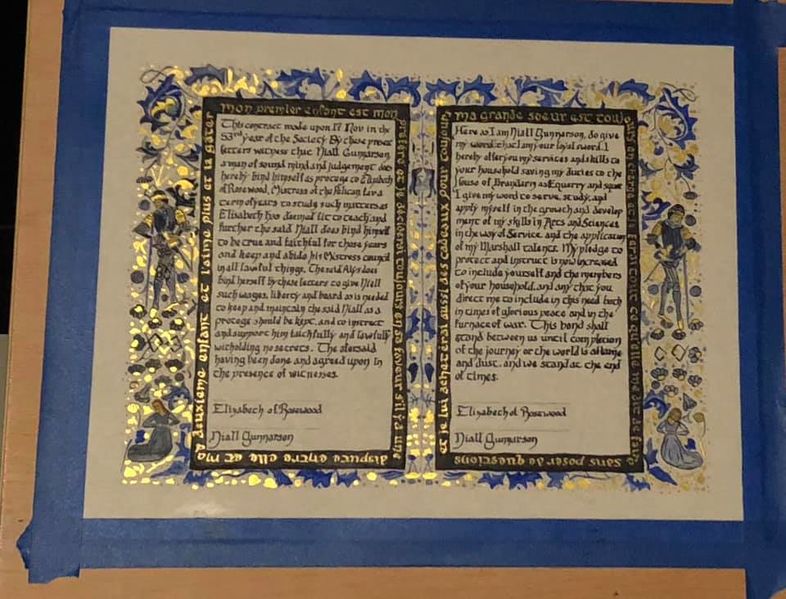 mon premier enfant est mon
préféré et je
toujours en sa faveur s'il y a une
dispute entre elle et ma
deuxieme enfant et l'aime plus et la gater
This contract made upon 17 Nov in the
53rd year of the Society By these present
letters witness that Niall Gunnarson
a man of sound mind and judgement does
hereby bind himself as protege to Elizabeth
of Rosewood, Mistress of the Pelican for a
term of years to study such matters as
Elizabeth has deemed fit to teach, and
further the said Niall does bind himself
to be true and faithful for those years
and keep and abide his Mistress council
in all lawful things. The said Alys does
bind herself by these letters to give Niall
such wages, liberty and board as is needed
to keep and maintain the said Niall as a
protege should be kept, and to instruct
and support him faithfully and lawfully
witholding no secrets. The aforsaid
having been done and agreed upon in
the presence of witnesses.
Elizabeth of Rosewood
Niall Gunnarson
ma grande soeur est toujo
sans poser de questions
et je lui achet erai aussi des cadeaux pour toujours
Here as I am Niall Gunnarson, do give
my word that I am your loyal sword. I
hereby offer you my services and skills to
your household saving my duties to the
House of Brandiry as Equerry and squire
I give my word to serve, study, and
apply myself in the growth and develop
ment of my skills in Arts and Sciences
in the way of Service, and the application
of my Marshall talents. My pledge to
protect and instruct is now increased
to include yourself and the members
of your household, and any that you
direct me to include in this need both
in times of glorious peace and in the
furnace of war. This bond shall
stand between us until completion
of the journey or the world is aflame
and dust, and we stand at the end
of times.
Elizabeth of Rosewood
Niall Gunnarson